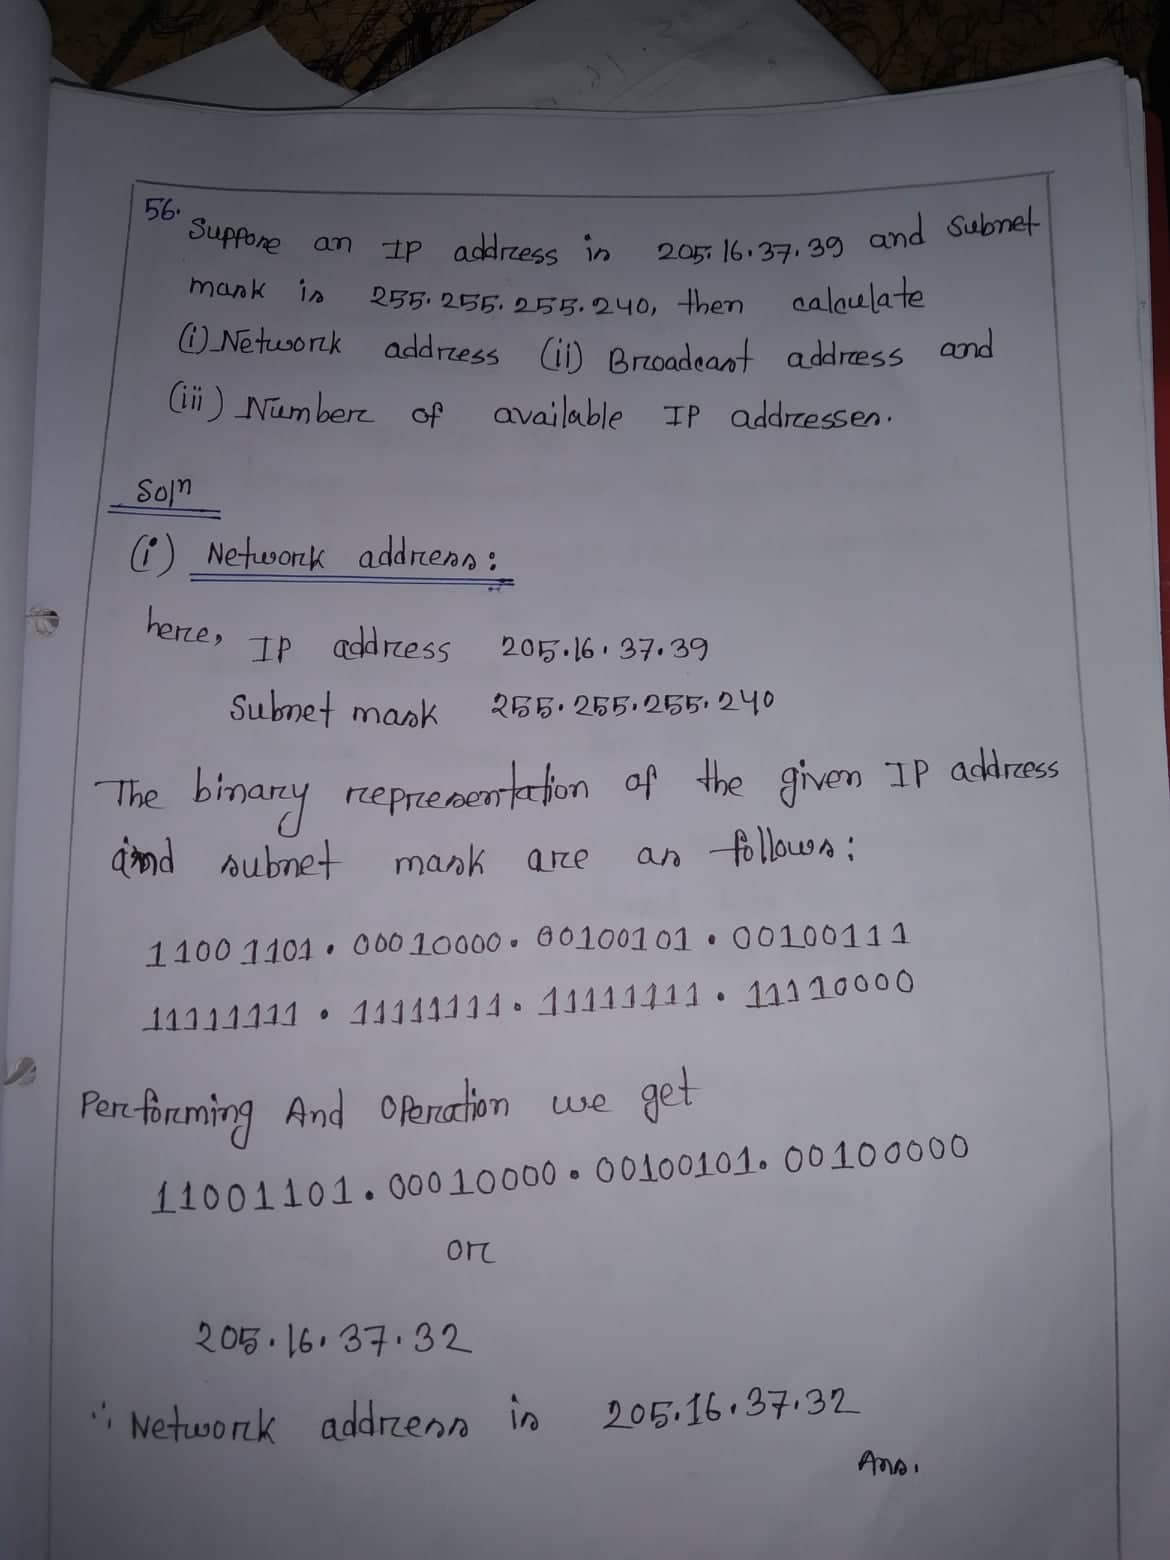 56. Suppose an IP address is 205.16.37.39 and subnet
mask is 255.255.255.240, then calculate
(i) Network address (ii) Broadcast address and
(iii) Number of available IP addresses.
Soln
(i) Network address:
here, IP address 205.16.37.39
Subnet mask 255.255.255.240
The binary representation of the given IP address
and subnet mask are as follows:
11001101.00010000.00100101.00100111
11111111.11111111.11111111.11110000
Performing And Operation we get
11001101.00010000.00100101.00100000
or
205.16.37.32
∴ Network address is 205.16.37.32
Ans.